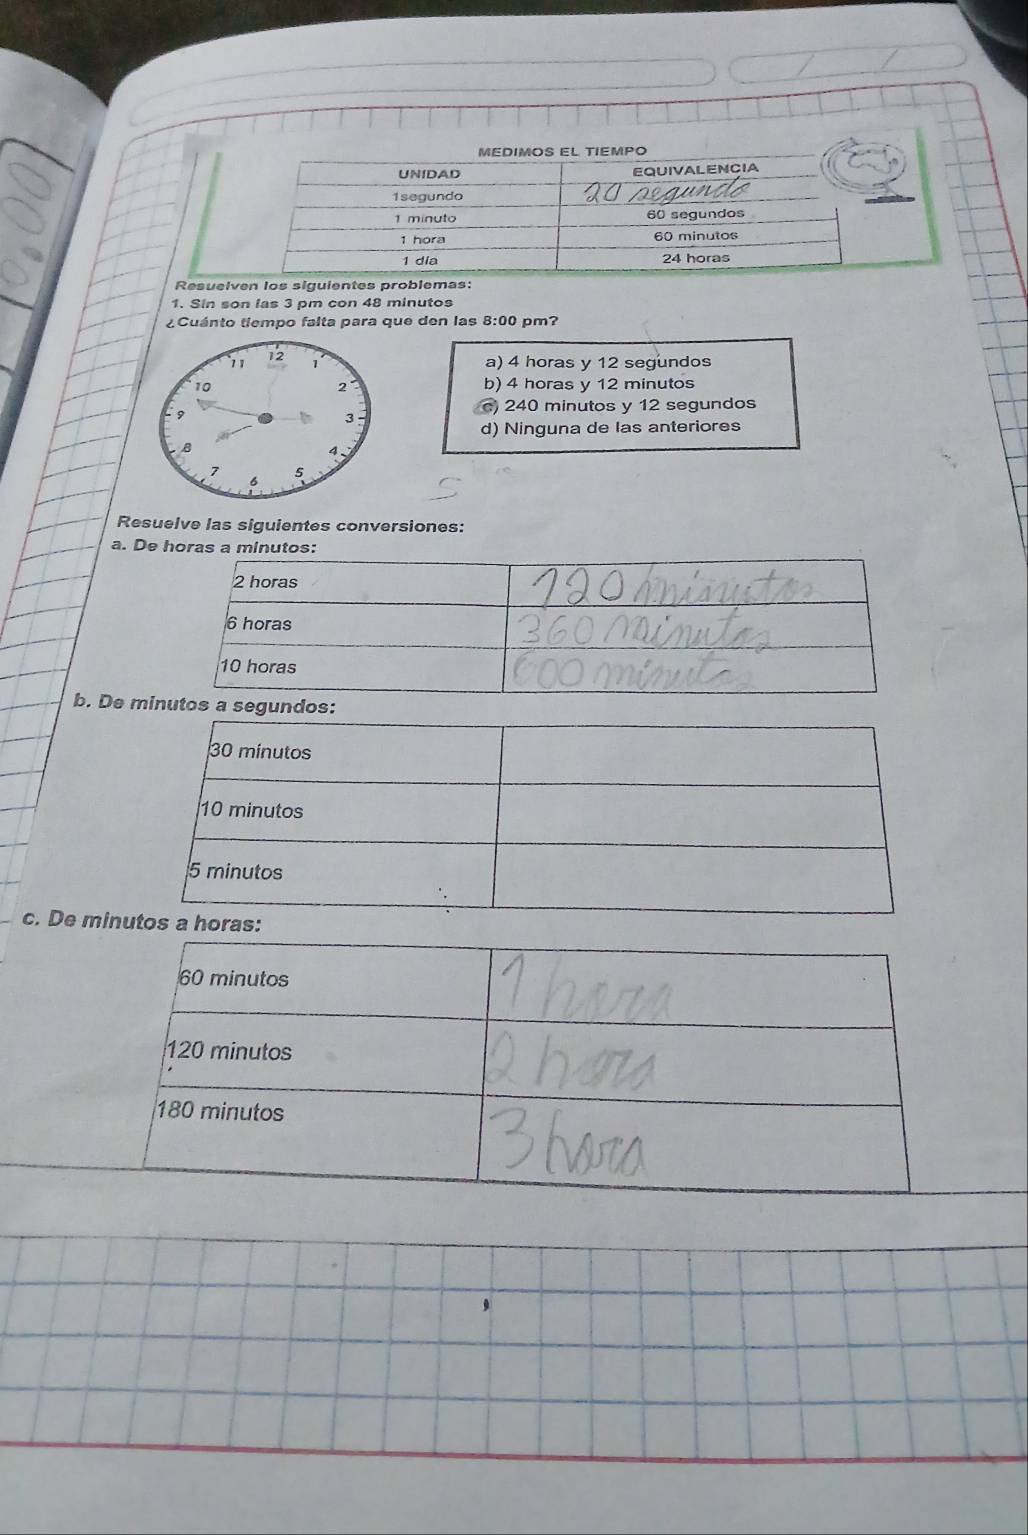 0.000
MEDIMOS EL TIEMPO
UNIDAD EQUIVALENCIA
1segundo 20 segundo
1 minuto 60 segundos
1 hora 60 minutos
1 día 24 horas
Resuelven los siguientes problemas:
1. Sin son las 3 pm con 48 minutos
¿Cuánto tiempo falta para que den las 8:00 pm?
12
11 1
10 2
9 3
8 4
7 5
6
a) 4 horas y 12 segundos
b) 4 horas y 12 minutos
c) 240 minutos y 12 segundos
d) Ninguna de las anteriores
S
Resuelve las siguientes conversiones:
a. De horas a minutos:
2 horas 120 minutos
6 horas 360 minutos
10 horas 600 minutos
b. De minutos a segundos:
30 minutos
10 minutos
5 minutos
c. De minutos a horas:
60 minutos 1 hora
120 minutos 2 hora
180 minutos 3 hora